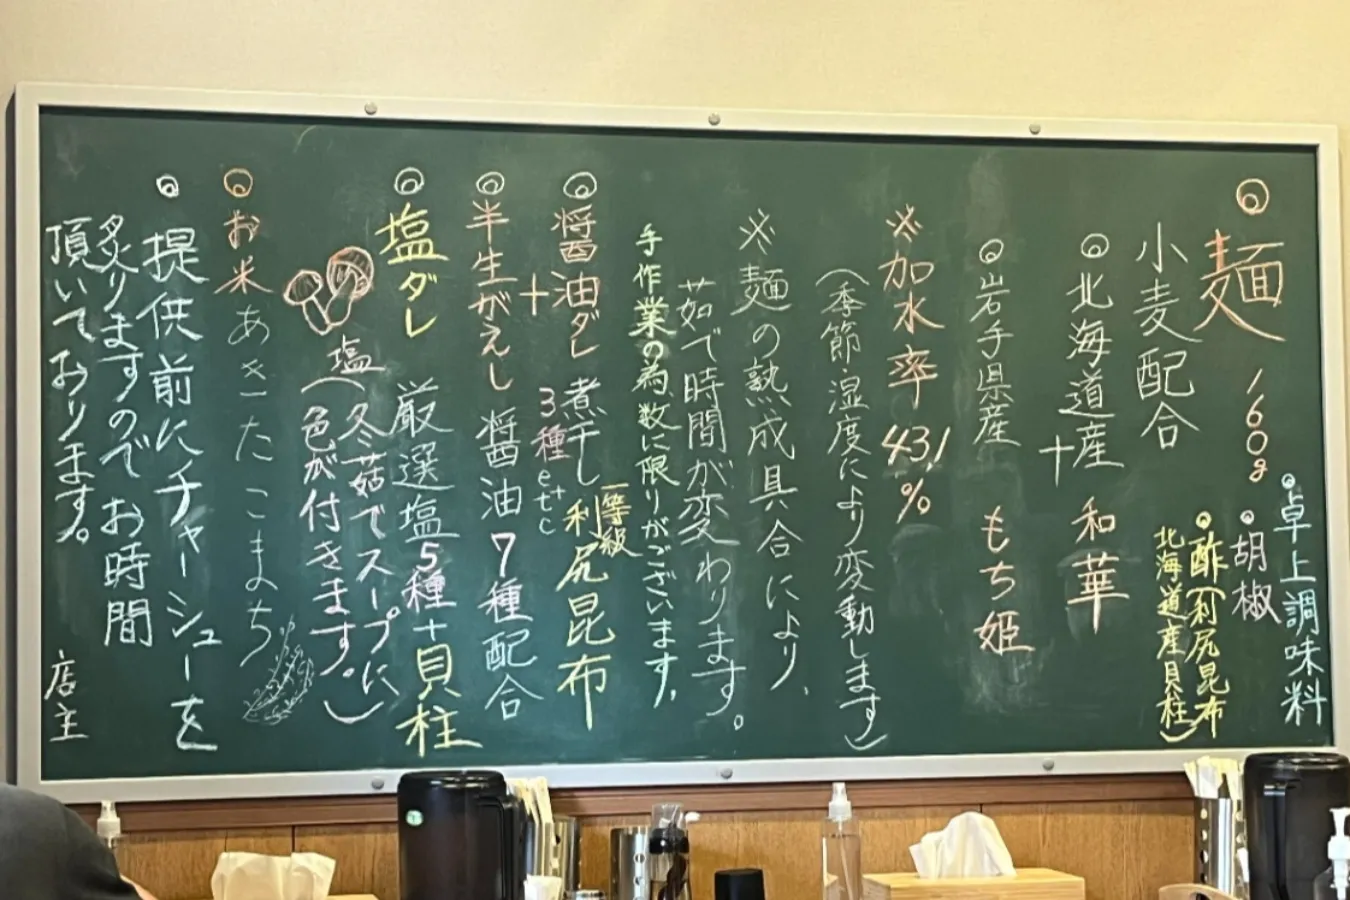 ◎麺 160g
小麦配合
◎北海道産 和華
+
◎岩手県産 もち姫
※加水率 43%
(季節・湿度により変動します)
※麺の熟成具合により、
茹で時間が変わります。
手作業の為、数に限りがございます。
◎醤油ダレ 煮干し3種etc+一等級利尻昆布
+
◎半生がえし 醤油7種配合
◎塩ダレ 厳選塩5種+貝柱
塩(冬菇でスープに
色が付きます。)
◎お米 あきたこまち
◎提供前にチャーシューを
炙りますのでお時間
頂いております。 店主
◎卓上調味料
◎胡椒
◎酢(利尻昆布
北海道産貝柱)